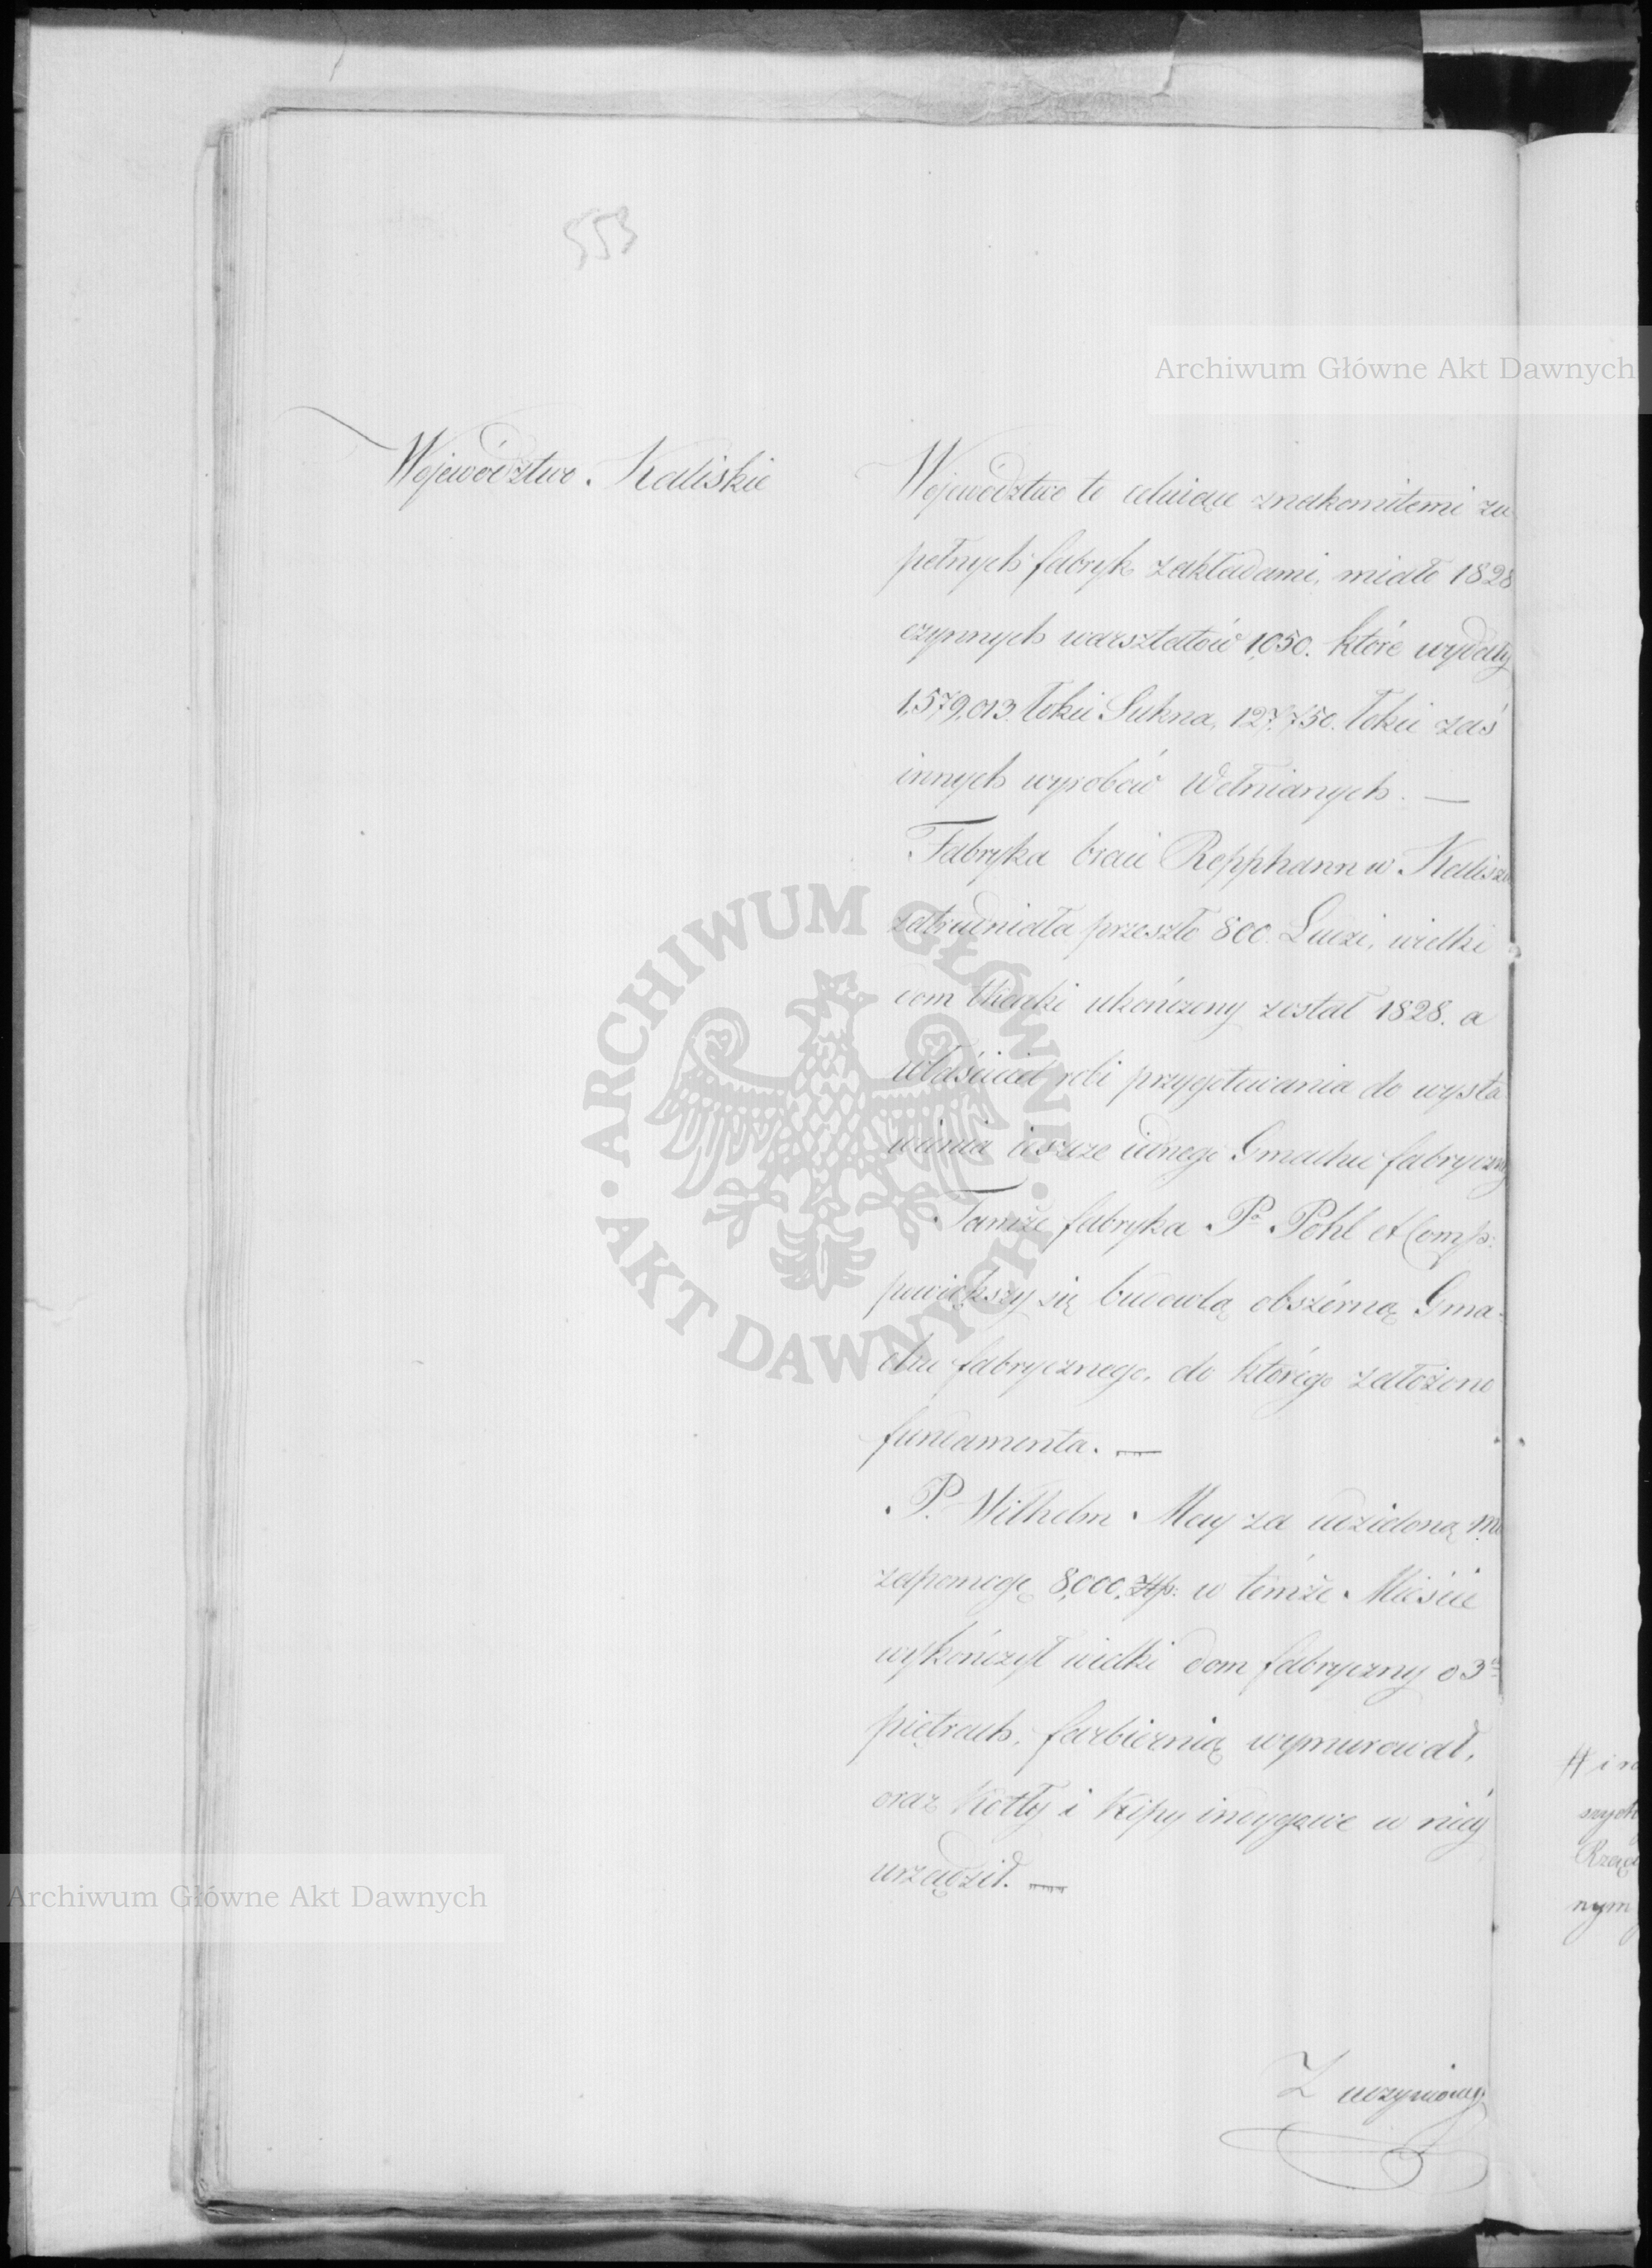 553
Archiwum Główne Akt Dawnych
Województwo Kaliskie
Województwo to celuiące znakomitemi zu
pełnych fabryk zakładami, miało 1828
czynnych warsztatów 1,050. które wydały
1,579,013. łokci Sukna, 127,750. łokci zaś
innych wyrobów Wełnianych. —
Fabryka braci Repphann w Kaliszu
zatrudniała przeszło 800. Ludzi, wielki
dom tkacki ukończony został 1828. a
właściciel robi przygotowania do wysta
wienia ieszcze iednego Gmachu fabryczn
Tamże fabryka Pa Pohl et Comp:
powiększy się budowlą obszérną Gma-
chu fabrycznego, do którego założono
fundamenta. —
P. Wilhelm May za udzieloną mu
zapomogę 8,000, Złp: w témże Mieście
wykończył wielki dom fabryczny o 3ch
piętrach, farbiernią wymurował,
oraz Kotły i Kipy indygowe w niéy
urządził. —
Z uczynioney
# i ro
szych
Rząd
nym
Archiwum Główne Akt Dawnych
ARCHIWUM GŁÓWNE AKT DAWNYCH